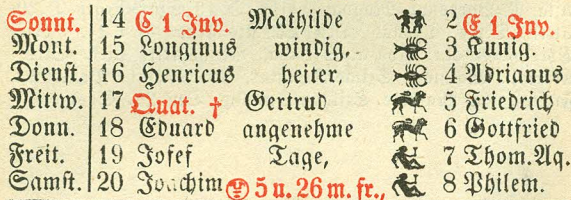 Sonnt. 14 C 1 Inv. Mathilde 2 E 1 Inv.
Mont. 15 Longinus windig, 3 Kunig.
Dienst. 16 Henricus heiter, 4 Adrianus
Mittw. 17 Quat. † Gertrud 5 Friedrich
Donn. 18 Eduard angenehme 6 Gottfried
Freit. 19 Josef Tage, 7 Thom. Aq.
Samst. 20 Joachim 5 u. 26 m. fr., 8 Philem.